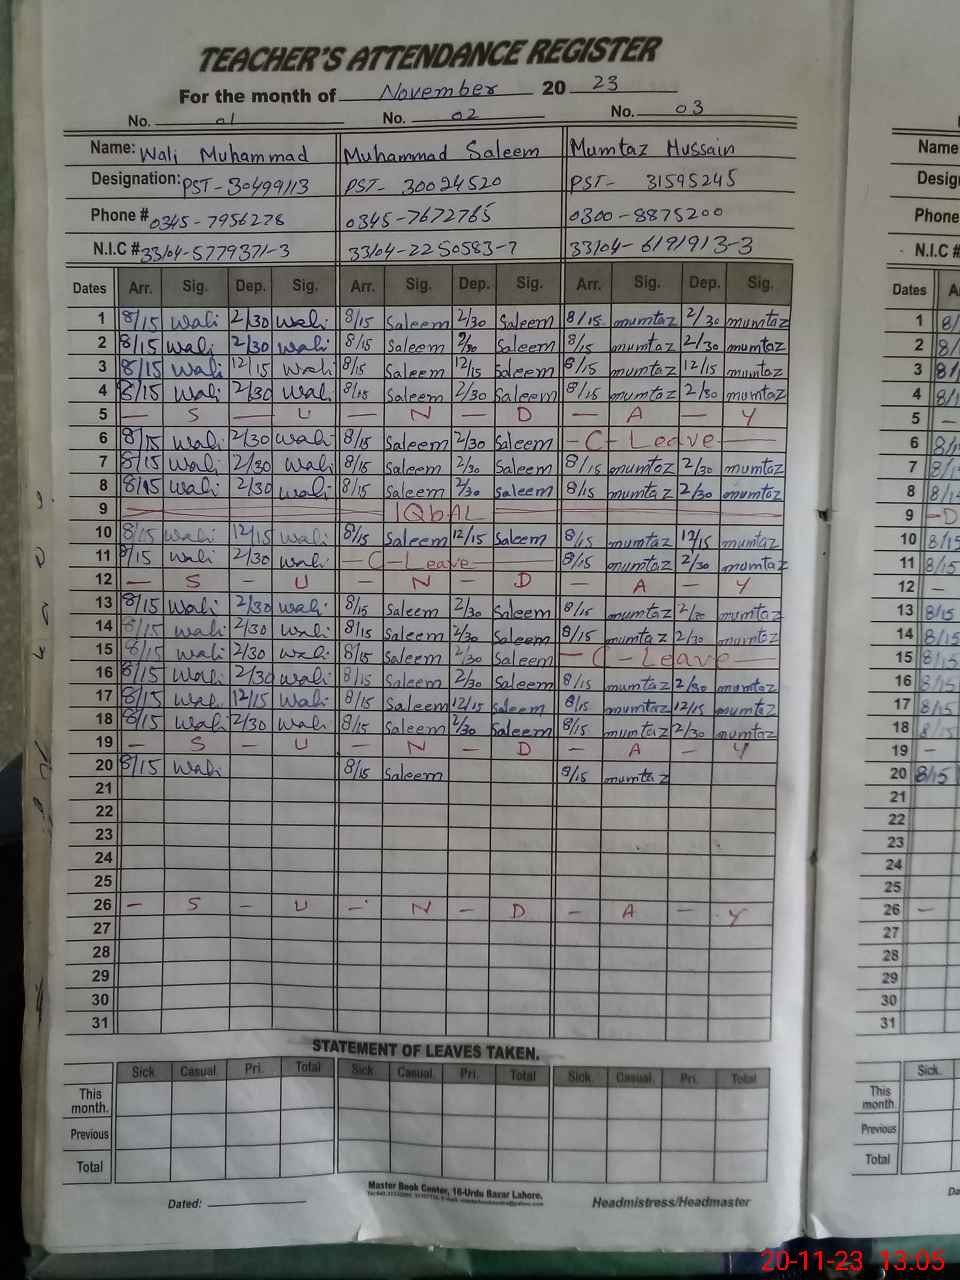 TEACHER'S ATTENDANCE REGISTER
For the month of November 20 23
No. 01 No. 02 No. 03
Name: Wali Muhammad Muhammad Saleem Mumtaz Hussain Name
Designation: PST-30499113 PST- 30024520 PST- 31595245 Desig
Phone # 0345-7956278 0345-7672765 0300-8875200 Phone
N.I.C # 33104-5779371-3 33104-2250583-7 33104-6191913-3 N.I.C #
Dates Arr. Sig. Dep. Sig. Arr. Sig. Dep. Sig. Arr. Sig. Dep. Sig. Dates A
1 8/15 Wali 2/30 Wali 8/15 Saleem 2/30 Saleem 8/15 mumtaz 2/30 mumtaz 1 8/
2 8/15 Wali 2/30 Wali 8/15 Saleem 2/30 Saleem 8/15 mumtaz 2/30 mumtaz 2 8/
3 8/15 Wali 12/15 Wali 8/15 Saleem 12/15 Saleem 8/15 mumtaz 12/15 mumtaz 3 8/
4 8/15 Wali 2/30 Wali 8/15 Saleem 2/30 Saleem 8/15 mumtaz 2/30 mumtaz 4 8/1
5 — S — U — N — D — A — Y 5 —
6 8/15 Wali 2/30 Wali 8/15 Saleem 2/30 Saleem — C - Leave — 6 8/1
7 8/15 Wali 2/30 Wali 8/15 Saleem 2/30 Saleem 8/15 mumtaz 2/30 mumtaz 7 8/1
8 8/15 Wali 2/30 Wali 8/15 Saleem 2/30 Saleem 8/15 mumtaz 2/30 mumtaz 8 8/1
9 IQbAL 9 —D
10 8/15 Wali 12/15 Wali 8/15 Saleem 12/15 Saleem 8/15 mumtaz 12/15 mumtaz 10 8/15
11 8/15 Wali 2/30 Wali — C - Leave — 8/15 mumtaz 2/30 mumtaz 11 8/15
12 — S — U — N — D — A — Y 12 —
13 8/15 Wali 2/30 Wali 8/15 Saleem 2/30 Saleem 8/15 mumtaz 2/30 mumtaz 13 8/15
14 8/15 Wali 2/30 Wali 8/15 Saleem 2/30 Saleem 8/15 mumtaz 2/30 mumtaz 14 8/15
15 8/15 Wali 2/30 Wali 8/15 Saleem 2/30 Saleem — C - Leave — 15 8/15
16 8/15 Wali 2/30 Wali 8/15 Saleem 2/30 Saleem 8/15 mumtaz 2/30 mumtaz 16 8/15
17 8/15 Wali 12/15 Wali 8/15 Saleem 12/15 Saleem 8/15 mumtaz 12/15 mumtaz 17 8/15
18 8/15 Wali 2/30 Wali 8/15 Saleem 2/30 Saleem 8/15 mumtaz 2/30 mumtaz 18 8/15
19 — S — U — N — D — A — Y 19 —
20 8/15 Wali 8/15 Saleem 8/15 mumtaz 20 8/15
21 21
22 22
23 23
24 24
25 25
26 — S — U — N — D — A — Y 26 —
27 27
28 28
29 29
30 30
31 31
STATEMENT OF LEAVES TAKEN.
Sick. Casual. Pri. Total Sick. Casual. Pri. Total Sick. Casual. Pri. Total Sick.
This month. This month.
Previous Previous
Total Total
Master Book Center, 16-Urdu Bazar Lahore.
Dated: Headmistress/Headmaster Da
20-11-23 13:05